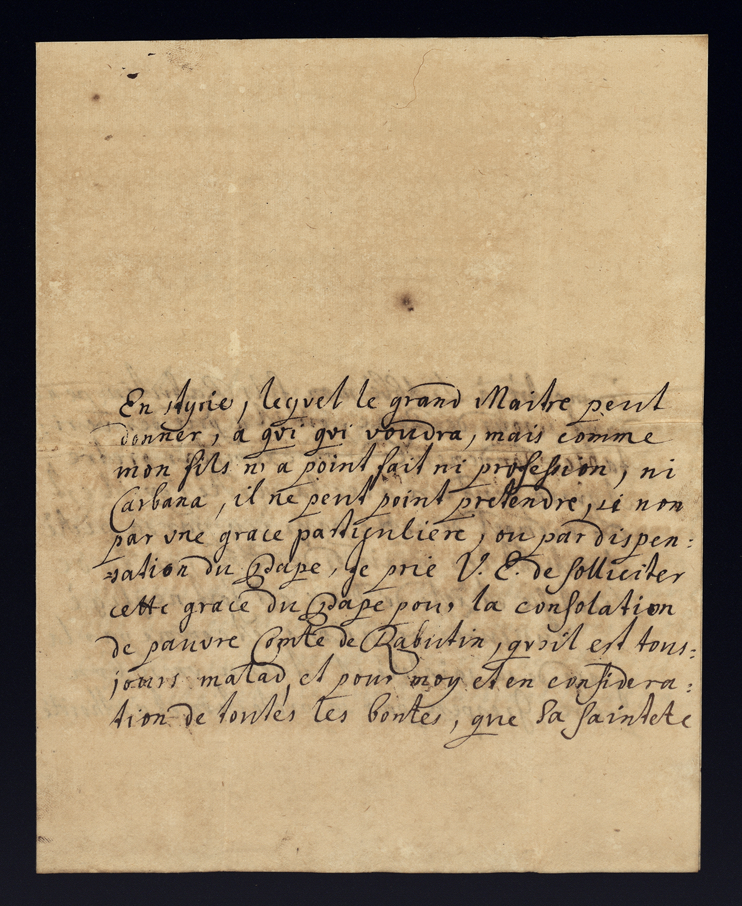 En styrie, lequel le grand Maitre peut
donner, a qvi qvi voudra, mais comme
mon fils n'a point fait ni profession, ni
Carbana, il ne peut point pretendre, si non
par vne grace particuliere, ou par dispen:
sation du Pape, je prie V. E. de solliciter
cette grace du Pape pour la consolation
de pauvre Comte de Rabutin, qvoil est tous:
jours malad, et pour moy et en considera:
tion de toutes les bontes, que Sa Saintete